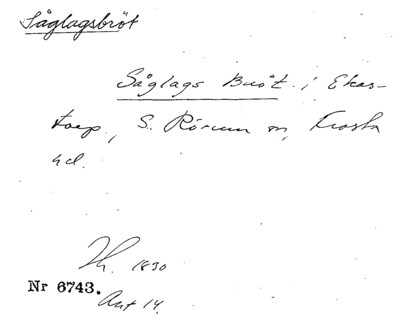 Såglagsbröt
Såglags Bröt i Ekas-
torp, S. Rörum sn, Frosta
hd.
Th. 1830
Nr 6743.
Akt 14.